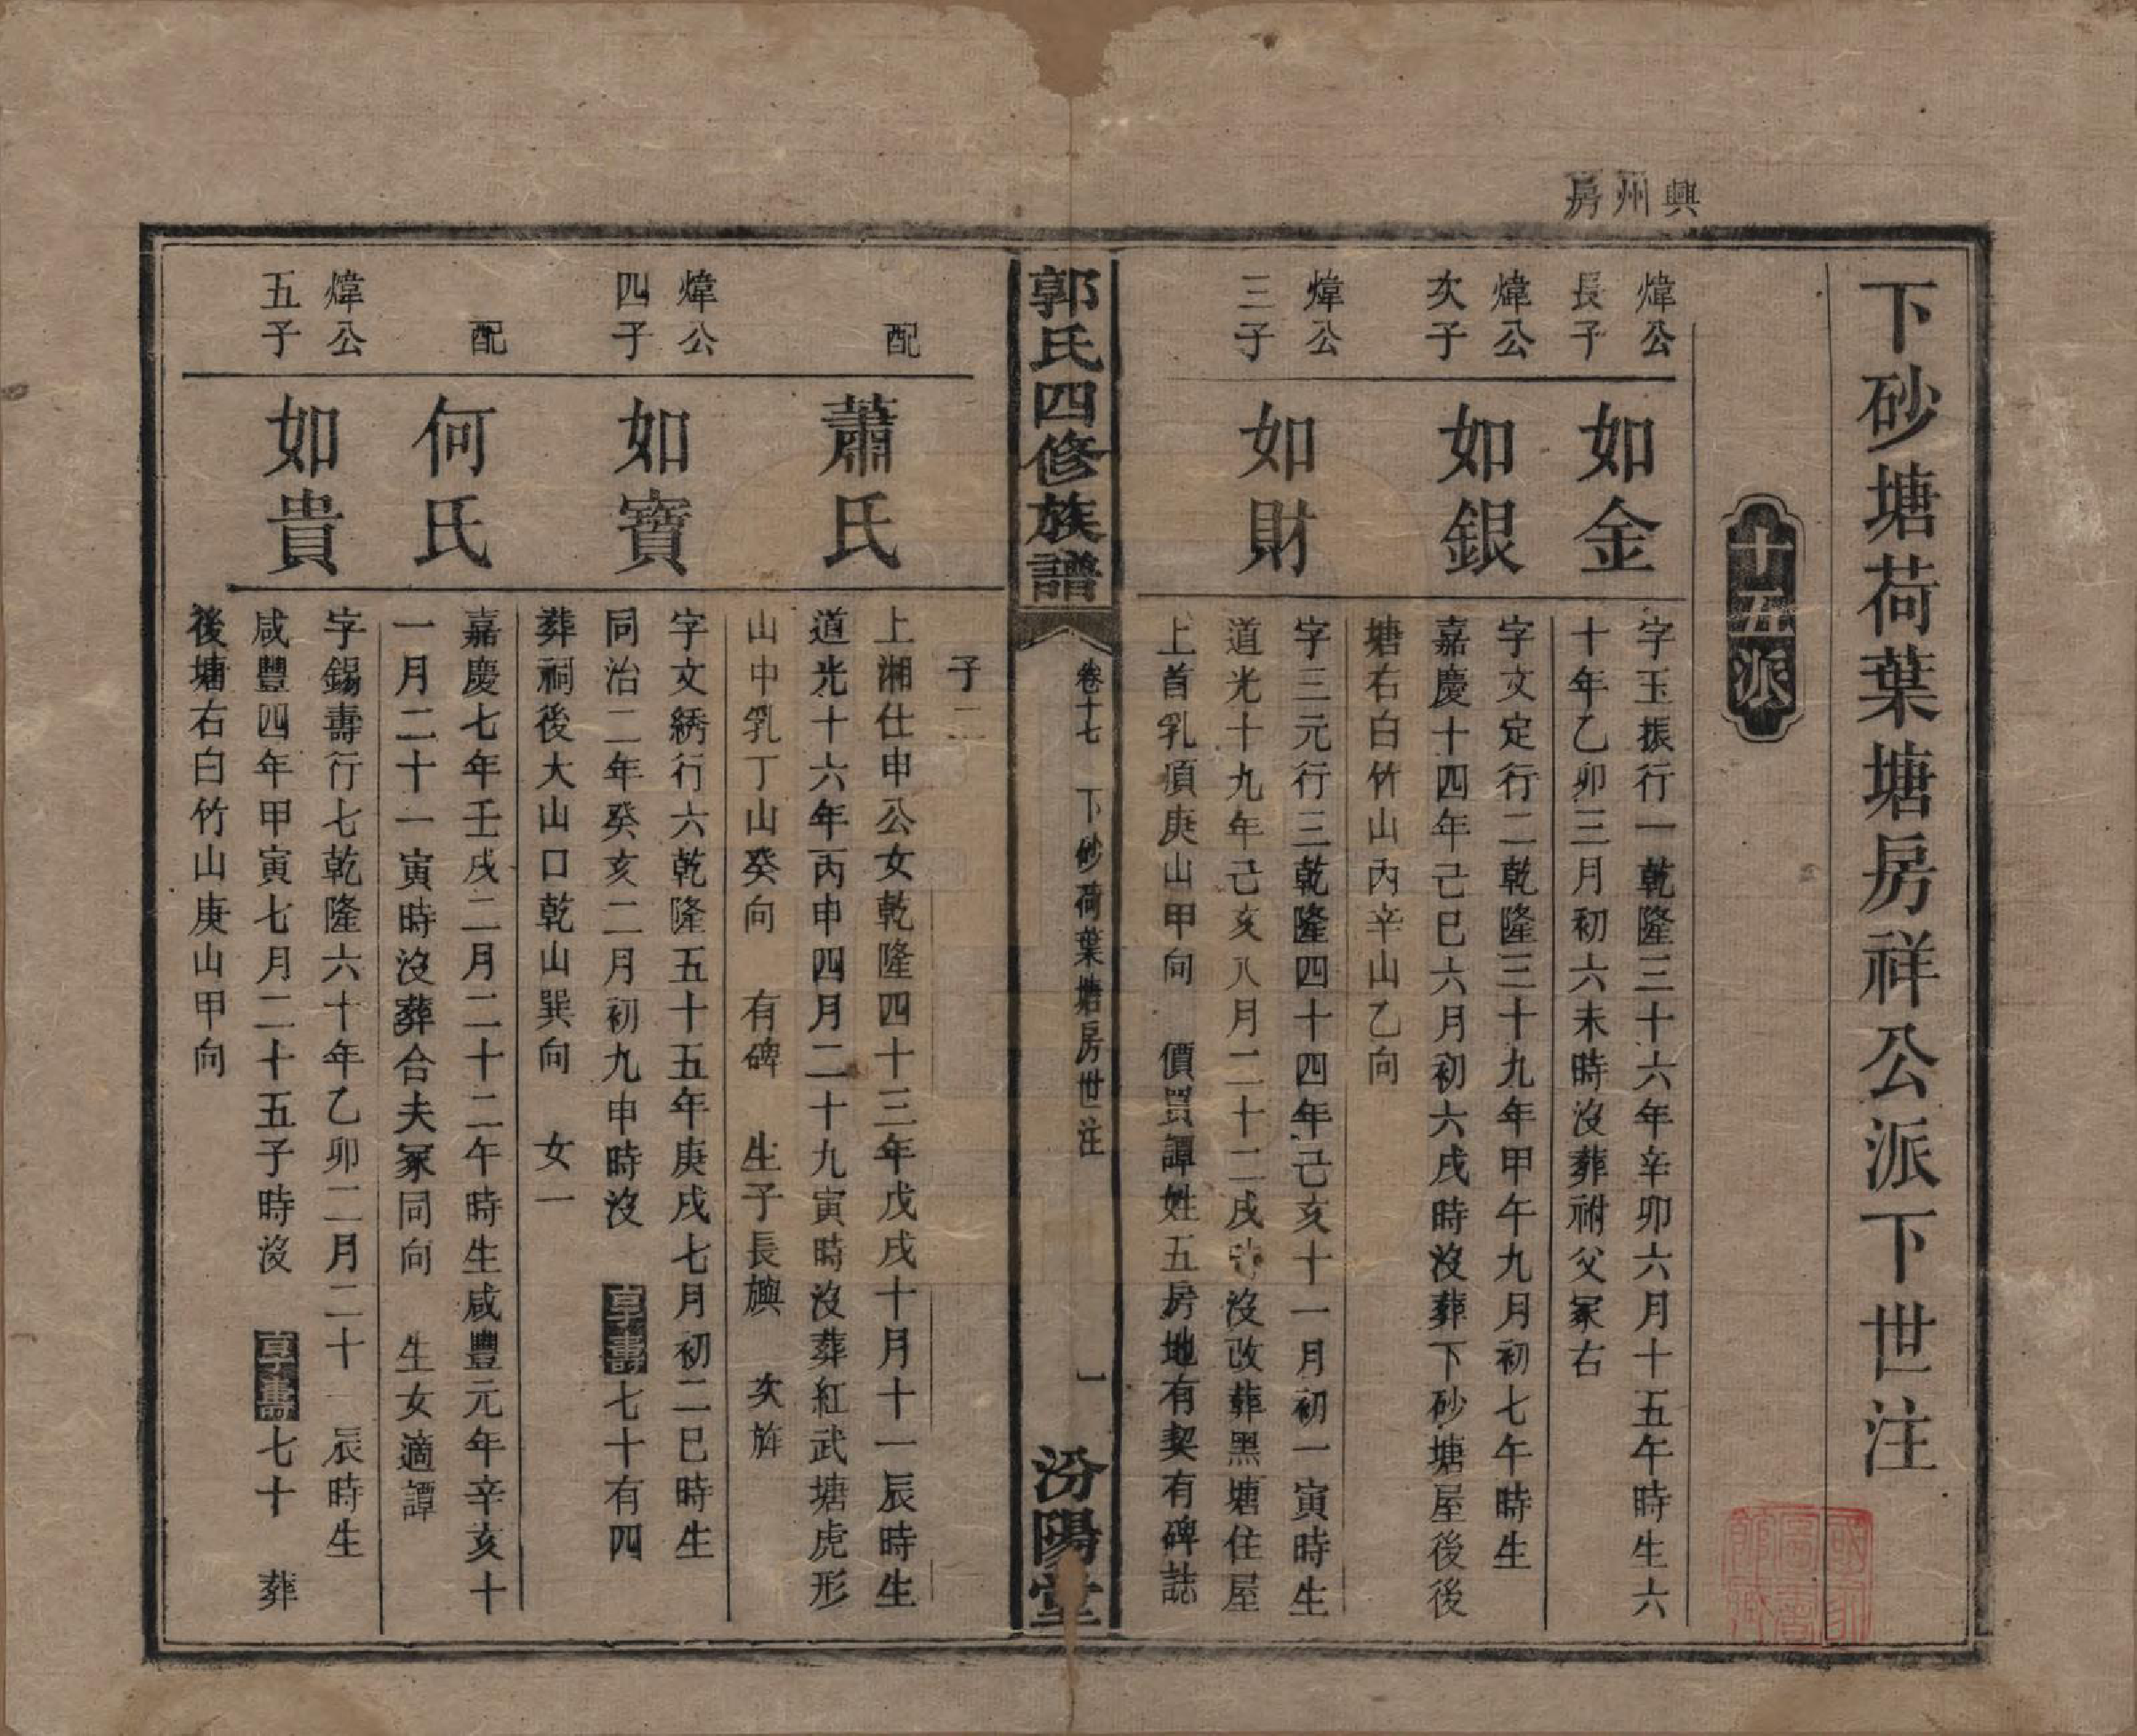 興州房
下砂塘荷葉塘房祥公派下世注
十五派
煒公
長子
如金
字玉振行一乾隆三十六年辛卯六月十五午時生六
十年乙卯三月初六未時沒葬祔父冢右
煒公
次子
如銀
字文定行二乾隆三十九年甲午九月初七午時生
嘉慶十四年己巳六月初六戌時沒葬下砂塘屋後後
塘右白竹山內辛山乙向
煒公
三子
如財
字三元行三乾隆四十四年己亥十一月初一寅時生
道光十九年己亥八月二十二戌時沒改葬黑塘住屋
上首乳項庚山甲向 價買譚姓五房地有契有碑誌
郭氏四修族譜
卷十七 下砂荷葉塘房世注
一
汾陽堂
子二
配
蕭氏
上湘仕申公女乾隆四十三年戊戌十月十一辰時生
道光十六年丙申四月二十九寅時沒葬紅武塘虎形
山中乳丁山癸向 有碑 生子長 次旌
煒公
四子
如寶
字文綉行六乾隆五十五年庚戌七月初二巳時生
同治二年癸亥二月初九申時沒 享壽七十有四
葬祠後大山口乾山巽向 女一
配
何氏
嘉慶七年壬戌二月二十二午時生咸豐元年辛亥十
一月二十一寅時沒葬合夫冢同向 生女適譚
煒公
五子
如貴
字錫壽行七乾隆六十年乙卯二月二十一辰時生
咸豐四年甲寅七月二十五子時沒 享壽七十 葬
後塘右白竹山庚山甲向